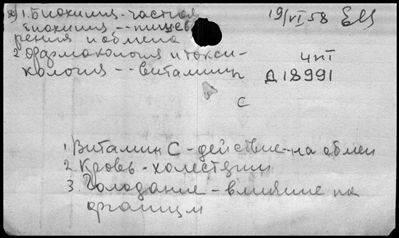 1. Биохимия-частная 19/VI 58
биохимия -- пищева
рения и обмена
2 Фармакология и токси- 4 пт
кология -- витамины Д18991
С
1. Витамин С - действие-на обмен
2. Кровь - холестерин
3 Голодание - влияние на
организм